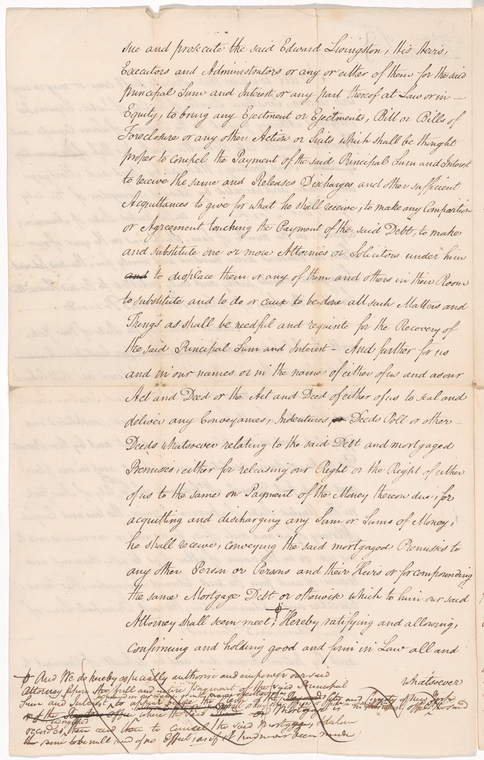 sue and prosecute the said Edward Livingston, His Heirs,
Executors and Administrators or any or either of them for the said
principal Sum and Interest or any part thereof at Law or in
Equity, to bring any Ejectment or Ejectments, Bill or Bills of
Foreclosure or any other Action or Suits which shall be thought
proper to Compel the Payment of the said Principal Sum and Interest
to receive the same and Releases Discharges and other sufficient
Acquittances to give for what he shall receive, to make any Composition
or Agreement touching the Payment of the said Debt, to make
and substitute one or more Attornies or Solicitors under him
and to displace them or any of them and others in their Room
to substitute and to do or cause to be done all such Matters and
Things as shall be needful and requisite for the Recovery of
the said Principal Sum and Interest - And further for us
and in our names or in the name of either of us and as our
Act and Deed or the Act and Deed of either of us to seal and
deliver any Conveyances, Indentures, or Deeds Poll or other
Deeds whatsoever relating to the said Debt and mortgaged
Premises, either for releasing our Right or the Right of either
of us to the same on Payment of the Money thereon due, for
acquitting and discharging any Sum or Sums of Money,
he shall receive, conveying the said mortgaged Premises to
any other Person or Persons and their Heirs or for compounding
the same Mortgage Debt or otherwise which to him our said
Attorney shall seem meet, Hereby ratifying and allowing,
confirming and holding good and firm in Law all and
whatsoever
And We do hereby especially authorise and empower our said
Attorney upon the full and entire Payment of the said Principal
Sum and Interest, to
of the Office where the said Mortgage
recorded, then and there to Cancel the said Mortgage, & declare
the same to be null and of no Effect, as if it had never been made